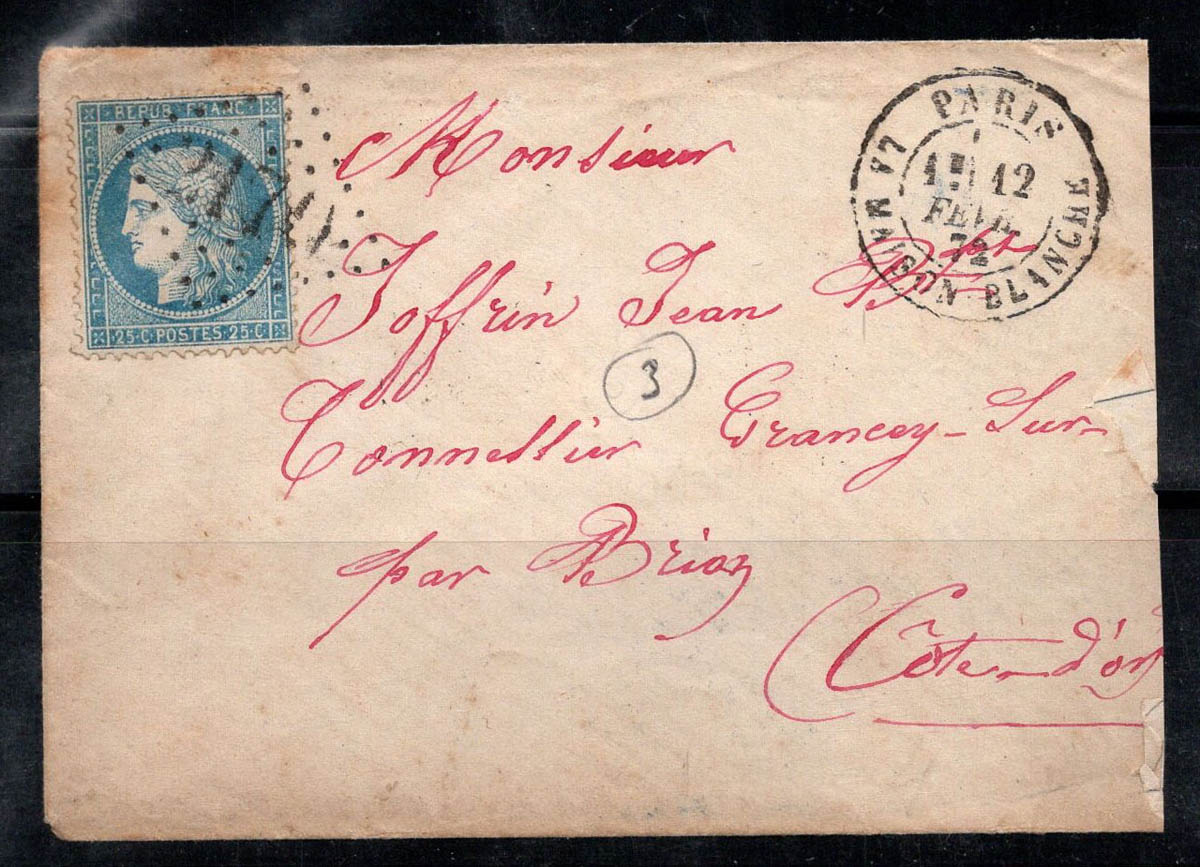 REPUB. FRANC.
25·C·POSTES·25·C
PARIS
12
FEVR.
72
LA MAISON BLANCHE
Monsieur
Joffrin Jean Bte
3
Tonnellier Grancey-Sur-
par Brion
Côte-d'or